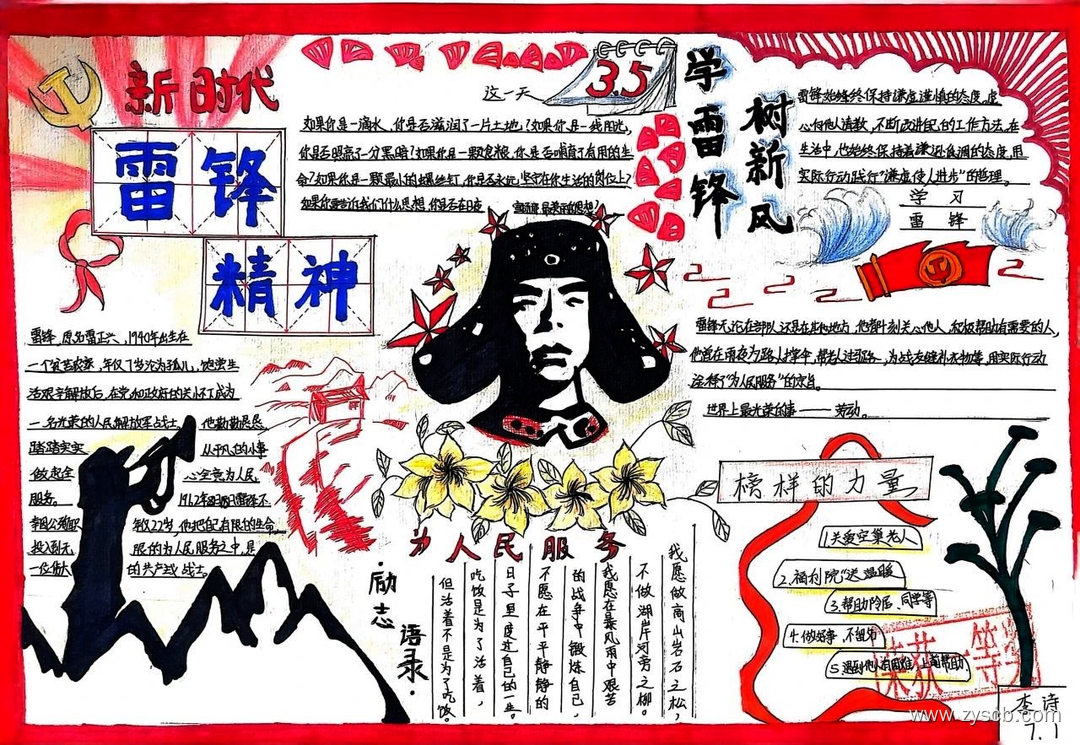 新时代
雷锋
精神
这一天
3.5
学雷锋
树新风
如果你是一滴水，你是否滋润了一片土地？如果你是一线阳光，
你是否照亮了一分黑暗？如果你是一颗粮食，你是否哺育了有用的生
命？如果你是一颗最小的螺丝钉，你是否永远坚守在你生活的岗位上？
如果你要告诉我们什么思想，你是否在日夜宣扬那最美丽的思想？
雷锋始终保持谦虚谨慎的态度，虚
心向他人请教，不断改进自己的工作方法。在
生活中，他始终保持着谦逊低调的态度，用
实际行动践行“谦虚使人进步”的哲理。
学习
雷锋
雷锋，原名雷正兴，1940年出生在
一个贫苦农家，年仅7岁沦为孤儿，饱尝生
活艰辛解放后，在党和政府的关怀下成为
一名光荣的人民解放军战士。他勤勤恳恳
踏踏实实 从平凡的小事
做起全 心全意为人民
服务。
年仅22岁，他把自己有限的生命
投入到无 限的为人民服务之中，是
一位伟大 的共产主义战士。
雷锋无论在部队还是在其他地方，他都时刻关心他人，积极帮助有需要的人，
他曾在雨夜为路人撑伞，帮老人过马路，为战友缝补衣物等，用实际行动
诠释了“为人民服务”的宗旨。
世界上最光荣的事——劳动。
为人民服务
励志
语录
我愿做高山岩石之松，
不做湖岸河旁之柳。
我愿在暴风雨中艰苦
的战争中锻炼自己，
不愿在平平静静的
日子里度过自己的一生。
吃饭是为了活着，
但活着不是为了吃饭。
榜样的力量
1.关爱空巢老人
2.福利院“送”温暖
3.帮助邻居、同学等
4.做好事，不留名
5.遇到他人有困难，上前帮助
荣获一等奖
李诗
7.1
www.zyscb.com